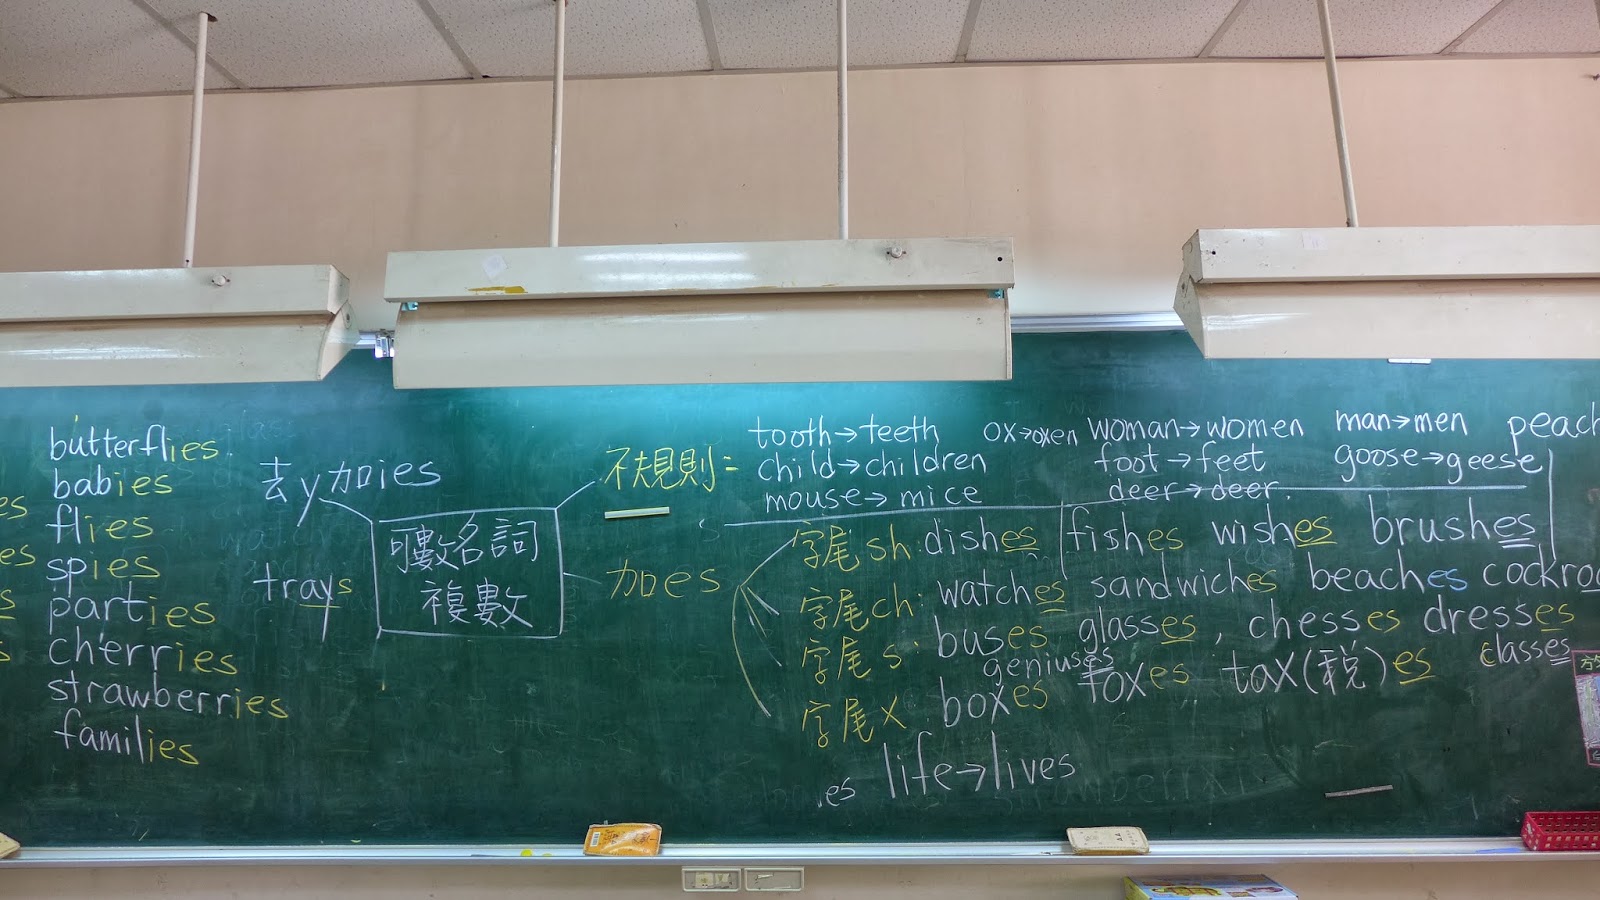 butterflies
babies
flies
spies
parties
cherries
strawberries
families
去y加ies
trays
可數名詞
複數
不規則=
加es
tooth→teeth ox→oxen woman→women man→men
child→children foot→feet goose→geese
mouse→mice deer→deer.
字尾sh: dishes fishes wishes brushes
字尾ch: watches sandwiches beaches
字尾s: buses glasses, chesses dresses
geniuses classes
字尾x boxes foxes tax(稅)es
es life→lives